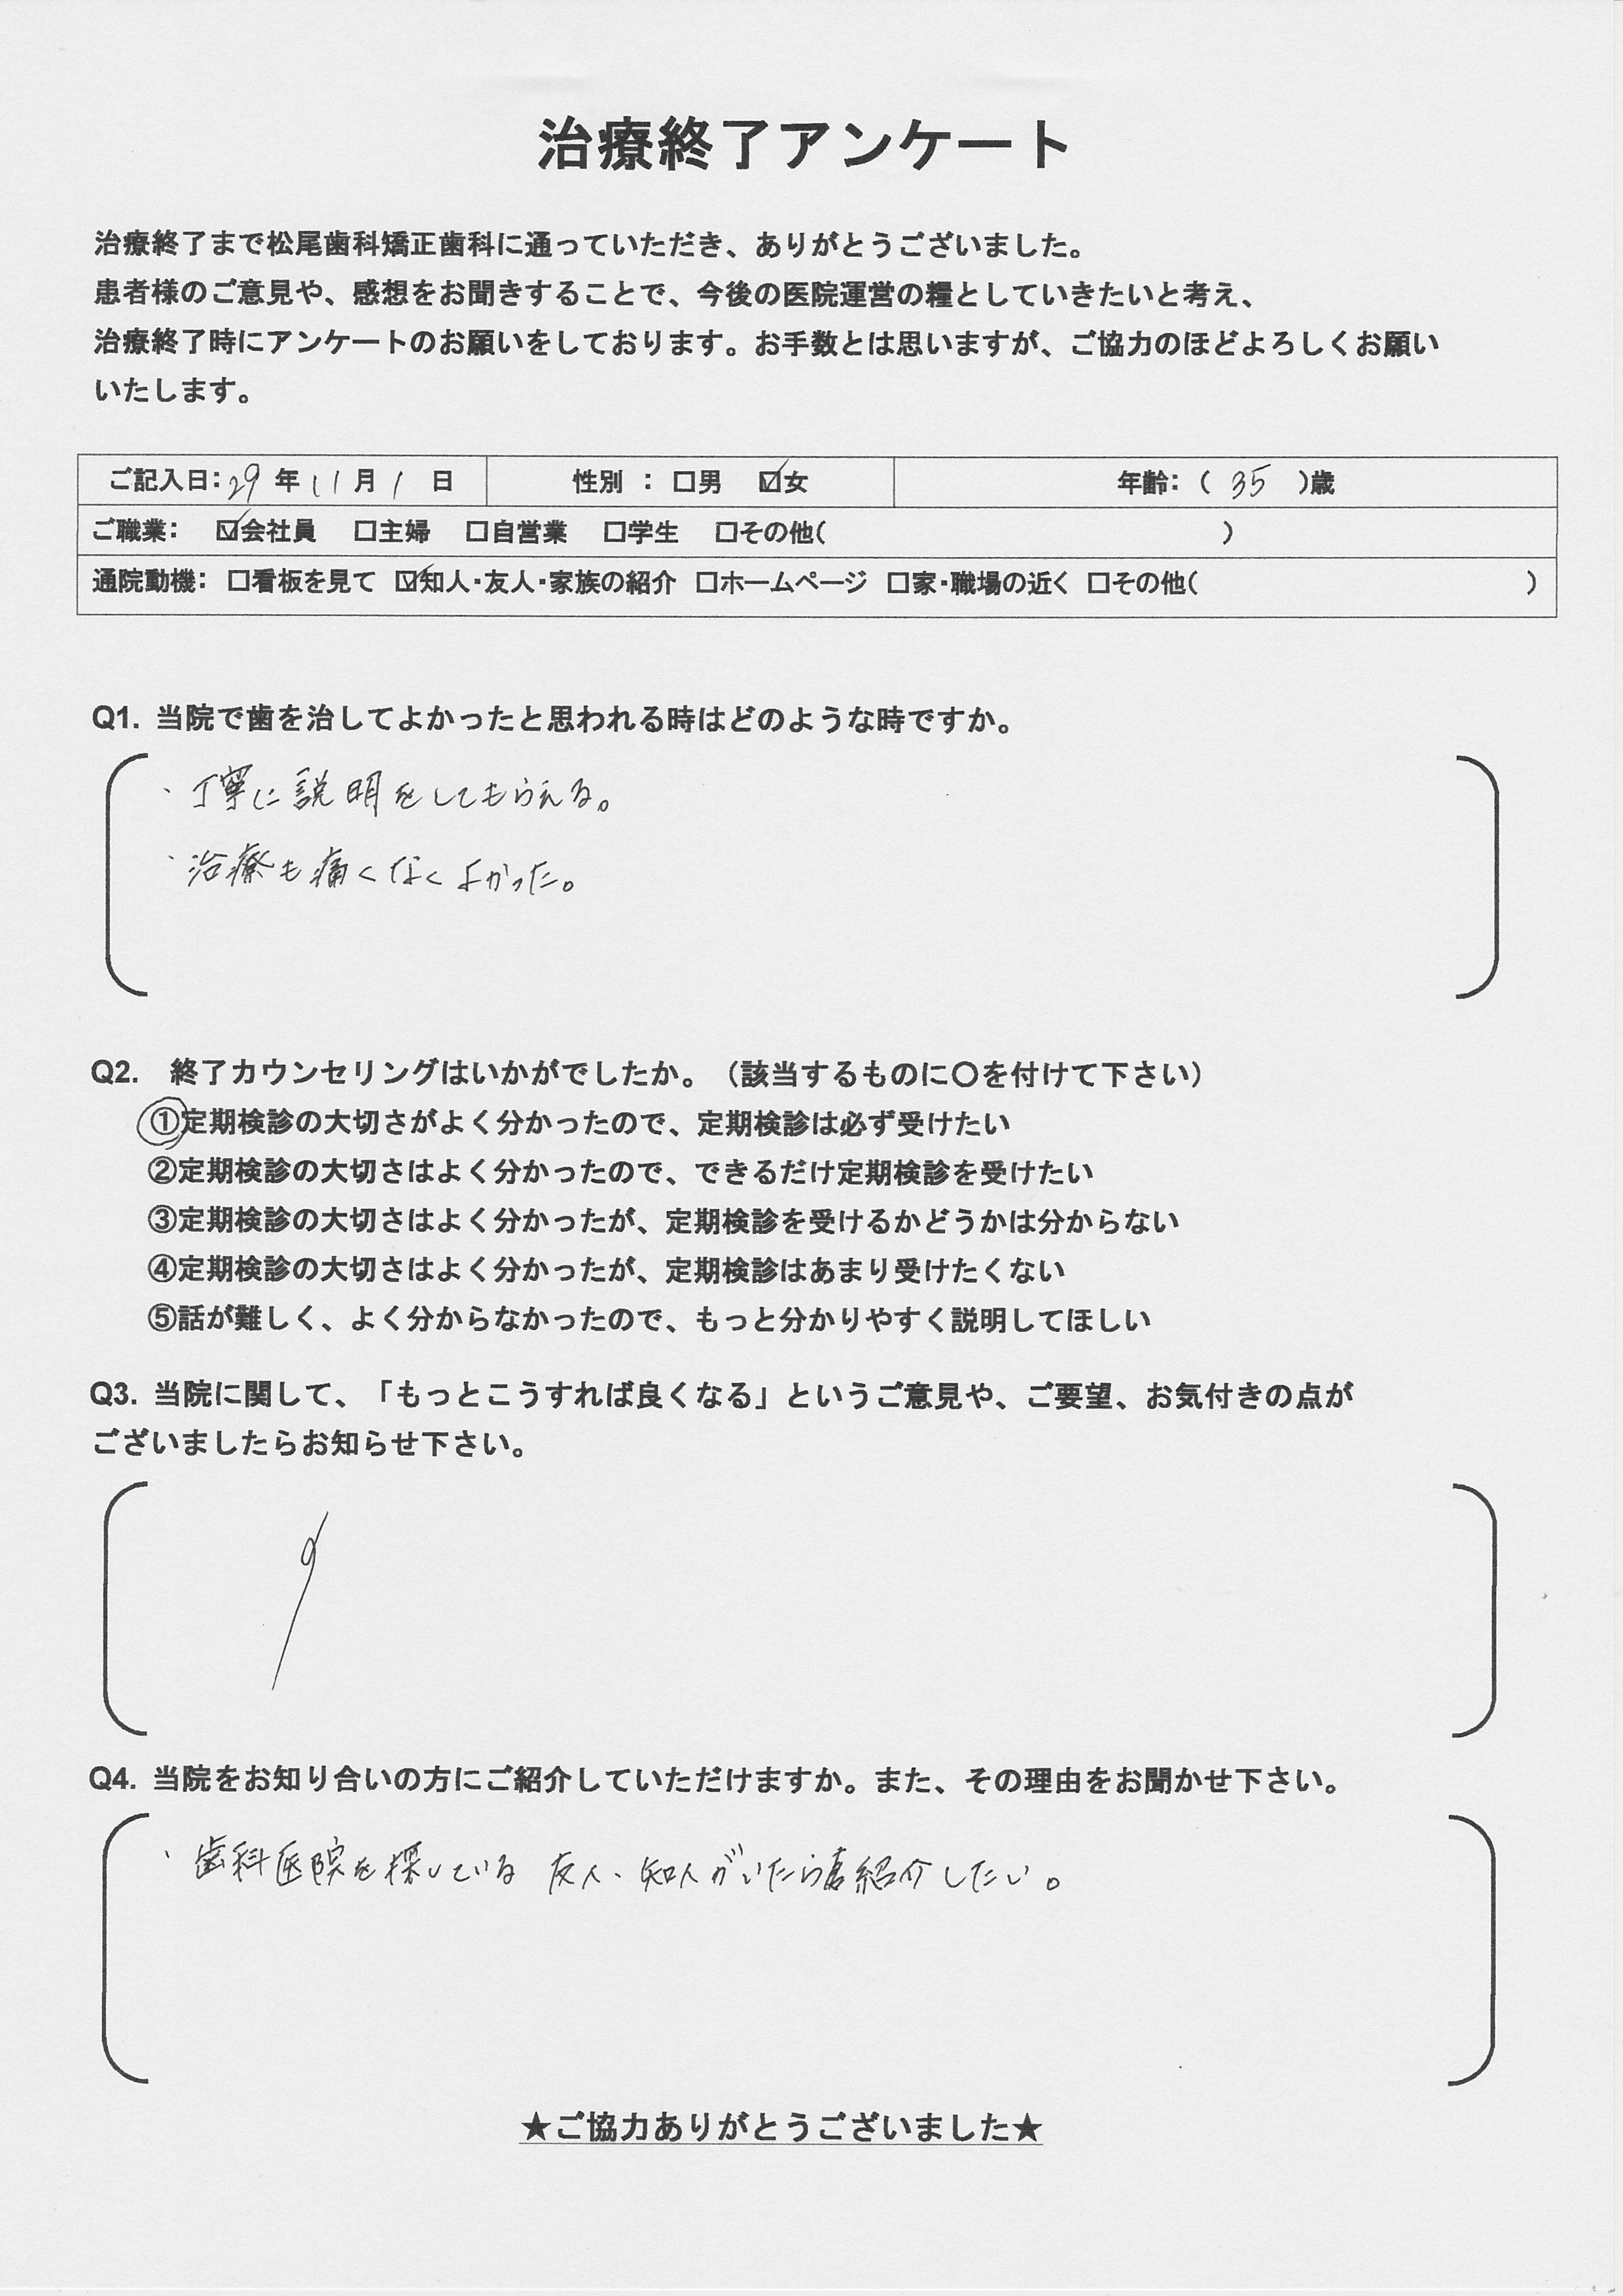 治療終了アンケート
治療終了まで松尾歯科矯正歯科に通っていただき、ありがとうございました。
患者様のご意見や、感想をお聞きすることで、今後の医院運営の糧としていきたいと考え、
治療終了時にアンケートのお願いをしております。お手数とは思いますが、ご協力のほどよろしくお願い
いたします。
ご記入日：29年11月1日 性別 ： □男 ☑女 年齢：（ 35 ）歳
ご職業： ☑会社員 □主婦 □自営業 □学生 □その他（ ）
通院動機： □看板を見て ☑知人・友人・家族の紹介 □ホームページ □家・職場の近く □その他（ ）
Q1. 当院で歯を治してよかったと思われる時はどのような時ですか。
・丁寧に説明をしてもらえる。
・治療も痛くなくよかった。
Q2. 終了カウンセリングはいかがでしたか。（該当するものに〇を付けて下さい）
①定期検診の大切さがよく分かったので、定期検診は必ず受けたい
②定期検診の大切さはよく分かったので、できるだけ定期検診を受けたい
③定期検診の大切さはよく分かったが、定期検診を受けるかどうかは分からない
④定期検診の大切さはよく分かったが、定期検診はあまり受けたくない
⑤話が難しく、よく分からなかったので、もっと分かりやすく説明してほしい
Q3. 当院に関して、「もっとこうすれば良くなる」というご意見や、ご要望、お気付きの点が
ございましたらお知らせ下さい。
Q4. 当院をお知り合いの方にご紹介していただけますか。また、その理由をお聞かせ下さい。
・歯科医院を探している 友人・知人がいたら紹介したい。
★ご協力ありがとうございました★